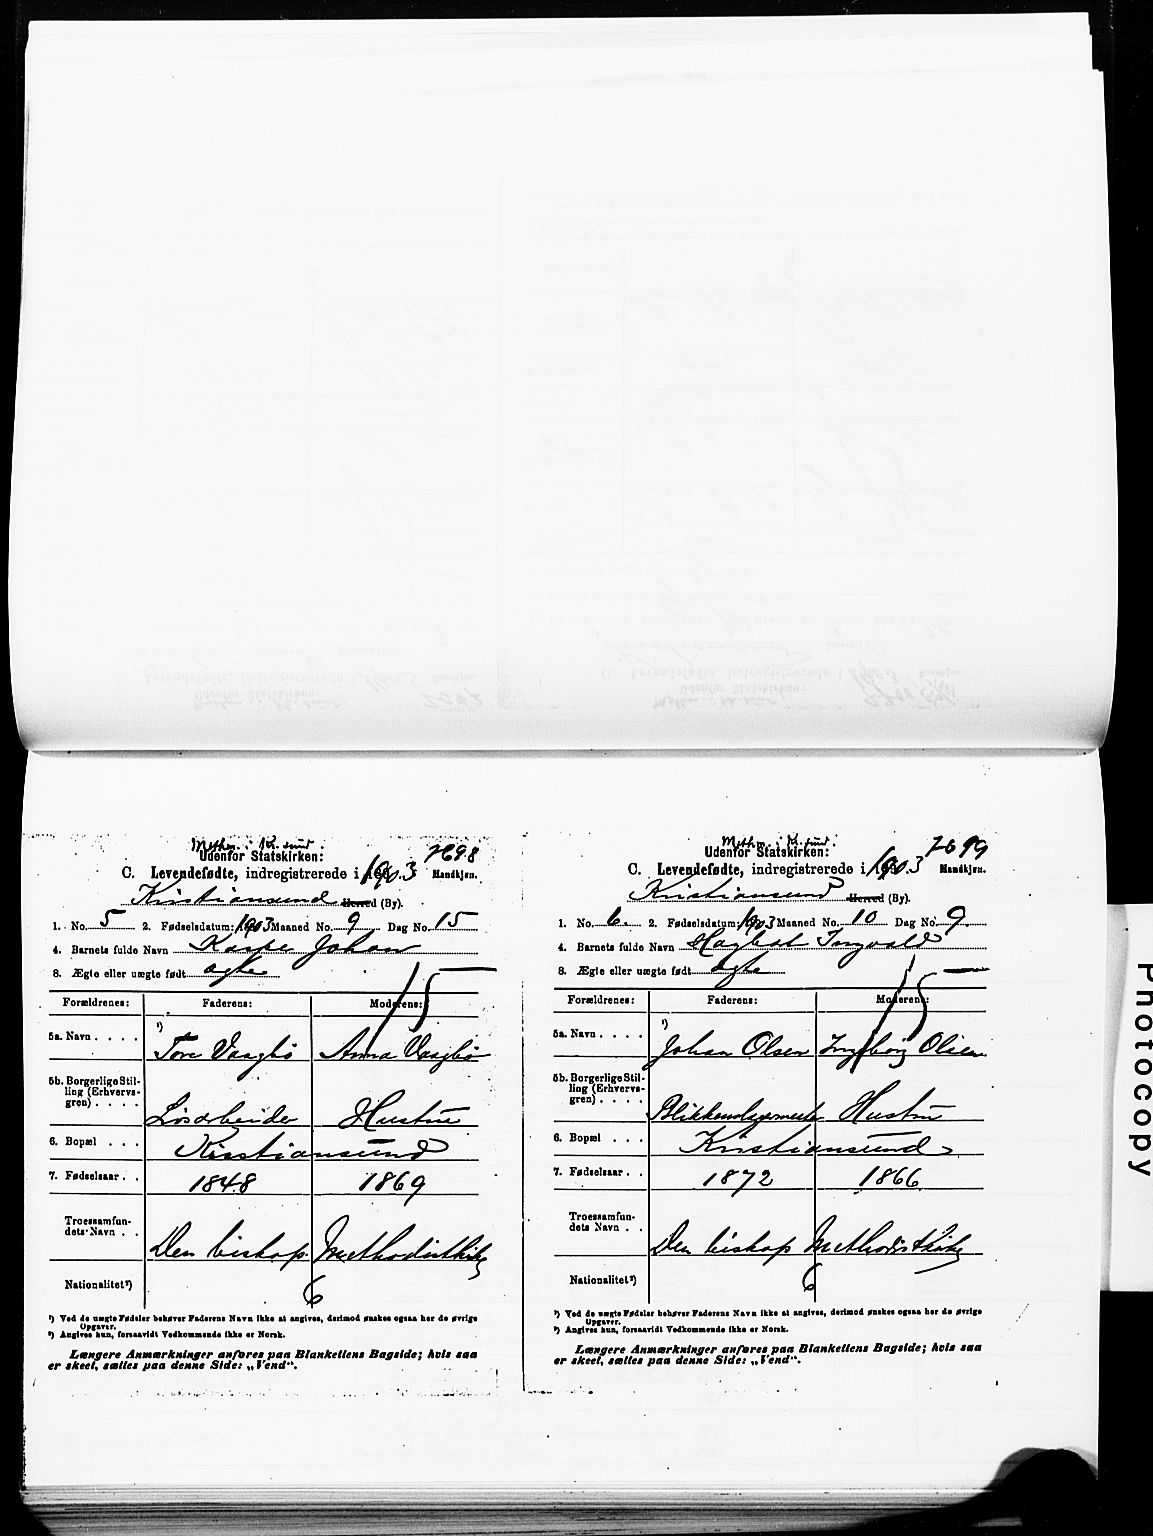 Methm. i Kr.sund.
Udenfor Statskirken:
2698
C. Levendefødte, indregistrerede i 1903 Mandkjøn.
Kristiansund Herred (By).
1. No. 5 2. Fødselsdatum: 1903 Maaned No. 9 Dag No. 15
4. Barnets fulde Navn Kaspe Johan
8. Ægte eller uægte født ægte
15
Forældrenes: Faderens: Moderens:
5a. Navn . . . . ¹) Tore Vaagbø Anna Vaagbø
5b. Borgerlige Stil-
ling (Erhvervs-
gren) . . . . Løsarbeider Hustru
6. Bopæl . . . Kristiansund
7. Fødselsaar . . 1848 1869
Troessamfun-
dets Navn . . Den biskop Methodistkirke
Nationalitet²) 6
¹) Ved de uægte Fødsler behøver Faderens Navn ikke at angives, derimod ønskes ogsaa her de øvrige
Opgaver.
²) Angives kun, forsaavidt Vedkommende ikke er Norsk.
Længere Anmærkninger anføres paa Blankettens Bagside; hvis saa
er skeet, sættes paa denne Side: „Vend“.
Methm. i Kr.sund.
Udenfor Statskirken:
2699
C. Levendefødte, indregistrerede i 1903 Mandkjøn.
Kristiansund Herred (By).
1. No. 6. 2. Fødselsdatum: 1903 Maaned No. 10 Dag No. 9.
4. Barnets fulde Navn Hagbat Ingvald
8. Ægte eller uægte født ægte
15
Forældrenes: Faderens: Moderens:
5a. Navn . . . . ¹) Johan Olsen Ingeborg Olsen
5b. Borgerlige Stil-
ling (Erhvervs-
gren) . . . . Blikkenslagermester Hustru
6. Bopæl . . . Kristiansund
7. Fødselsaar . . 1872 1866
Troessamfun-
dets Navn . . Den biskop Methodistkirke
Nationalitet²) 6
¹) Ved de uægte Fødsler behøver Faderens Navn ikke at angives, derimod ønskes ogsaa her de øvrige
Opgaver.
²) Angives kun, forsaavidt Vedkommende ikke er Norsk.
Længere Anmærkninger anføres paa Blankettens Bagside; hvis saa
er skeet, sættes paa denne Side: „Vend“.
Photocopy